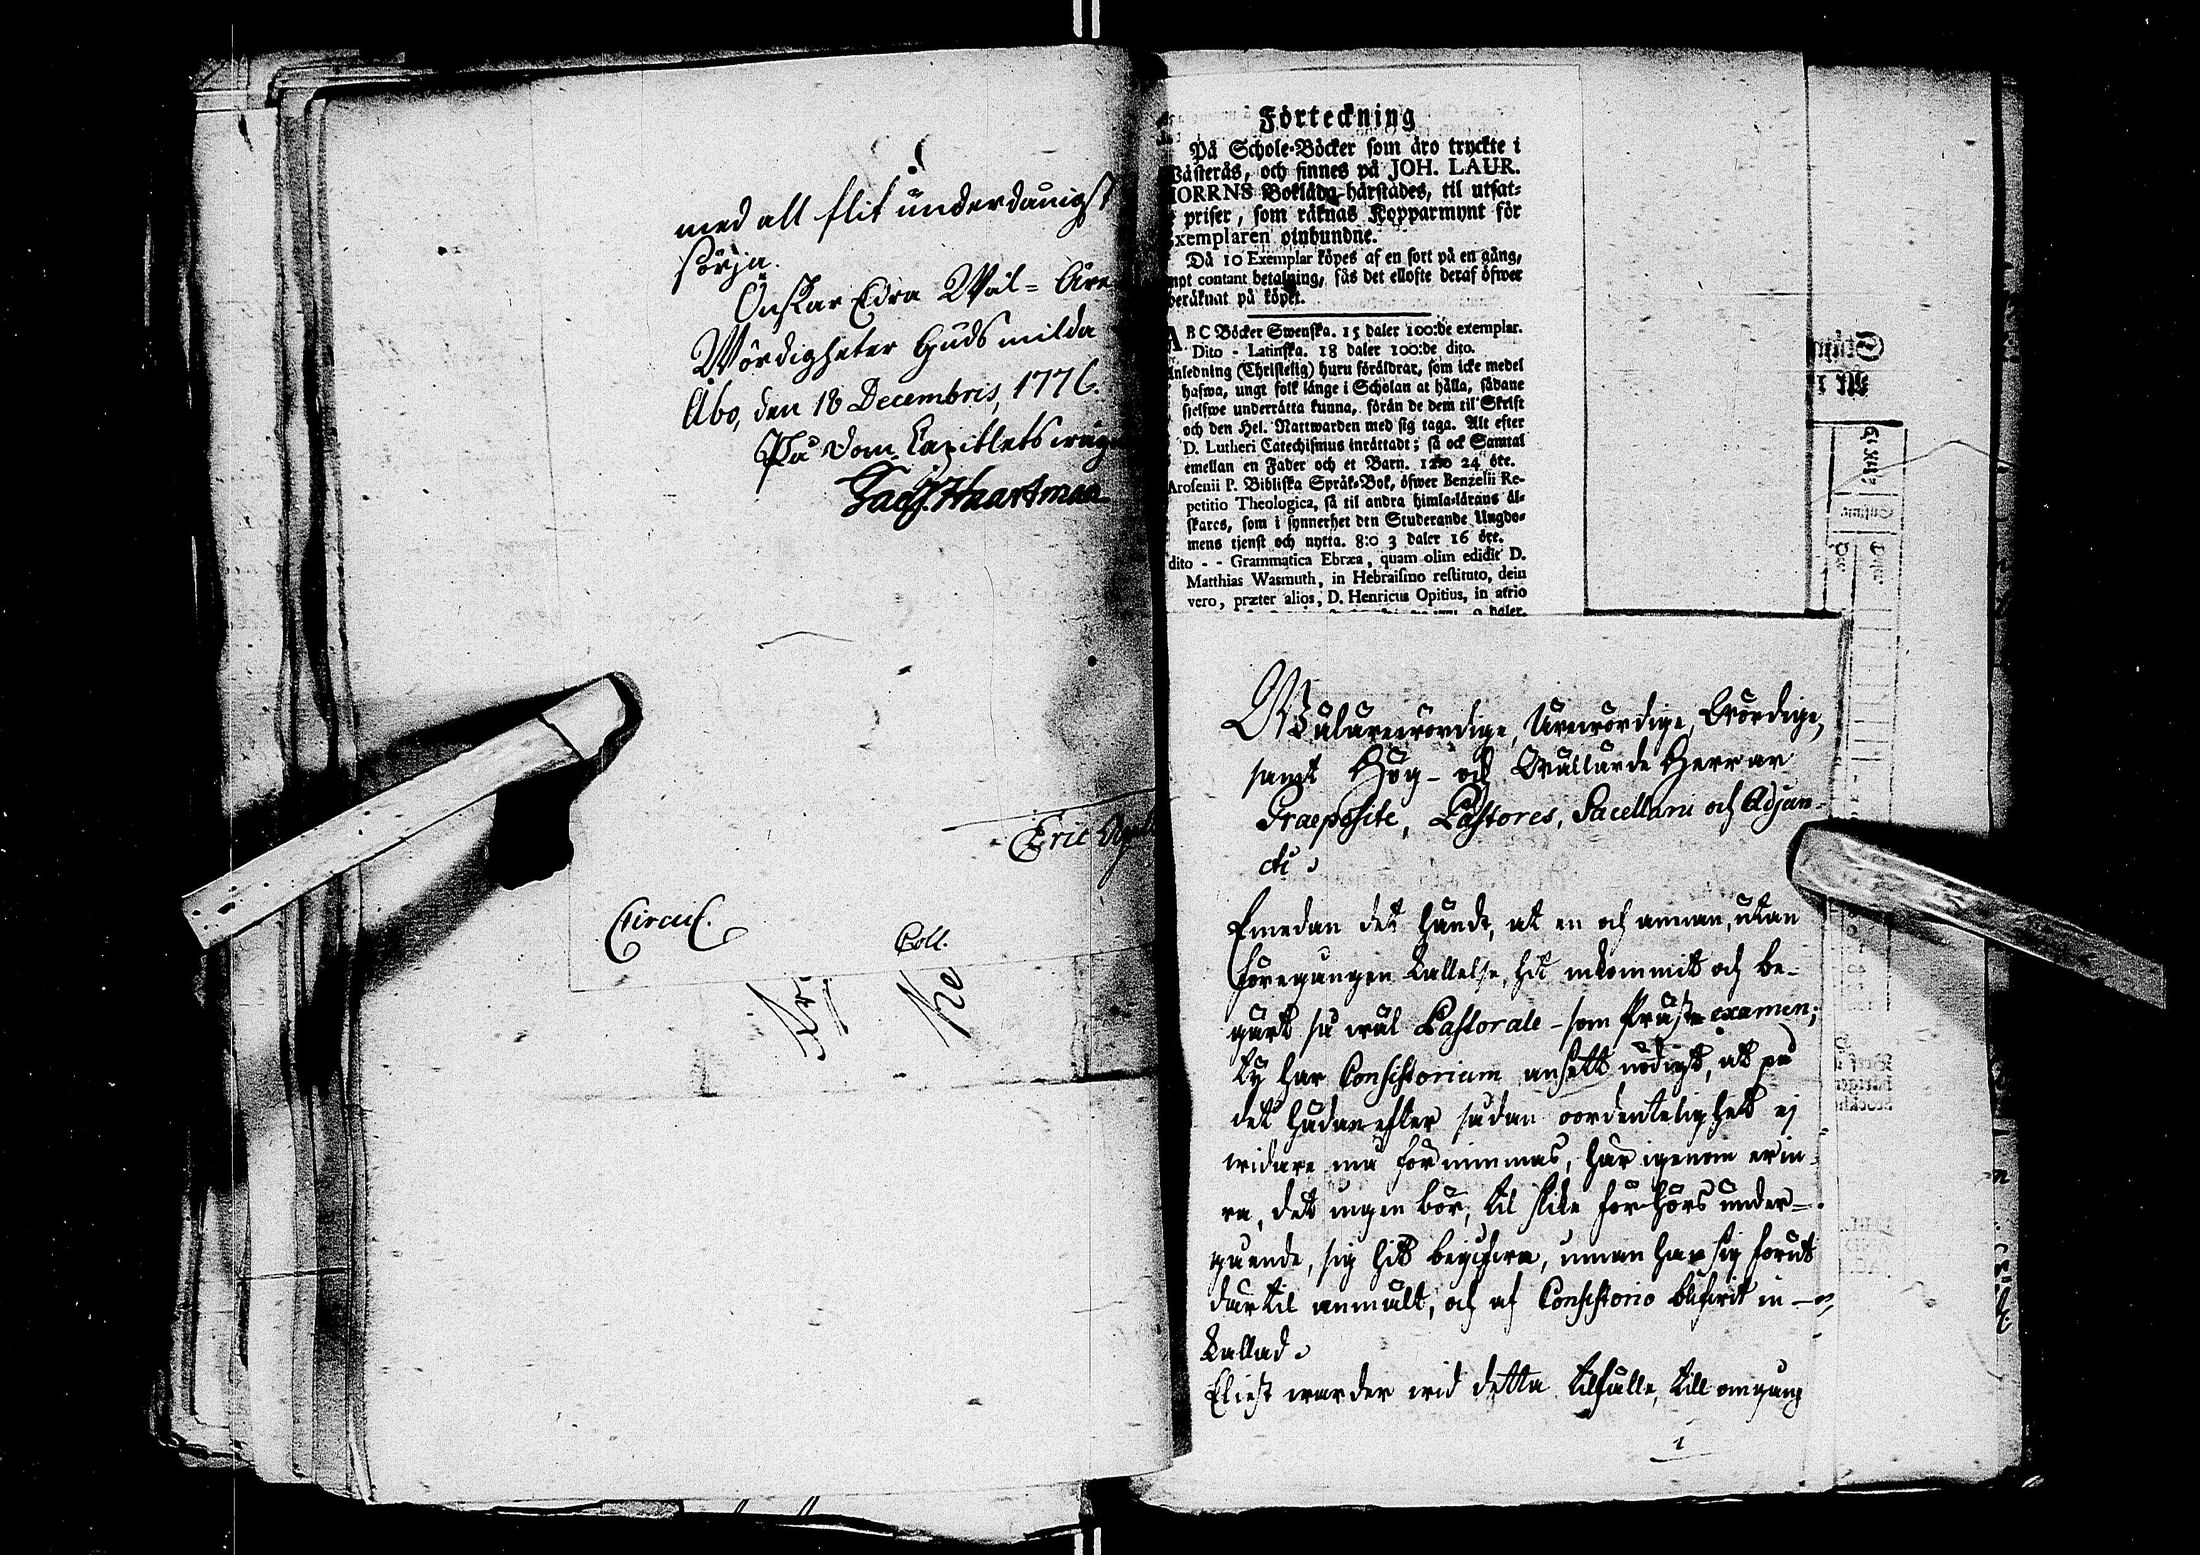 med all flit underdånigst
sörja.
Önskar Edra Wäl-Äre
Wördigheter Guds milda
Åbo, den 18 Decembris, 1776.
På Dom-Capitlets wägn
Jac. Haartman
Eric
Circul.
Coll.
Förteckning
På Schole-Böcker som äro tryckte i
Wästerås, och finnes på JOH. LAUR.
HORRNS Boklåda härstädes, til utsat-
priser, som räknas Kopparmynt för
Exemplaren oinbundne.
Då 10 Exemplar köpes af en sort på en gång,
mot contant betalning, fås det ellofte deraf öfwer
beräknat på köpet.
ABC Böcker Swenska. 15 daler 100:de exemplar.
Dito - Latinska. 18 daler 100:de dito.
Anledning (Christelig) huru föräldrar, som icke medel
hafwa, ungt folk länge i Scholan at hålla, sådane
sielfwe underrätta kunna, förän de dem til Skrift
och den Hel. Nattwarden med sig taga. Alt efter
D. Lutheri Catechismus inrättadt; så ock Samtal
emellan en Fader och et Barn. 12:o 24 öre.
Arosenii P. Bibliska Språk-Bok, öfwer Benzelii Re-
petitio Theologica, så til andra himla-lärans äl-
skares, som i synnerhet den Studerande Ungdo-
mens tjenst och nytta. 8:o 3 daler 16 öre.
dito - - Grammatica Ebræa, quam olim edidit D.
Matthias Wasmuth, in Hebraismo restituto, dein
vero, præter alios, D. Henricus Opitius, in atrio
9 daler.
Wälärewördige, Ärewördige, Wördige,
samt Hög- och Wällärde Herrar
Praeposite, Pastores, Sacellani och Adjun-
cti.
Emedan det händt, at en och annan, utan
föregången kallelse, hit inkommit och be-
gärt så wäl Pastorale- som Präste-examen;
Ty har Consistorium ansett nödigt, at på
det hädanefter sådan oordentelighet ej
widare må förnimmas, här igenom erin-
ra, det ingen bör, til slike förhörs under-
gående, sig hit begifwa, innan han sig förut
därtil anmält, och af Consistorio blifwit in-
kallad.
Eliest warder wid detta tilfälle, till omgång
1